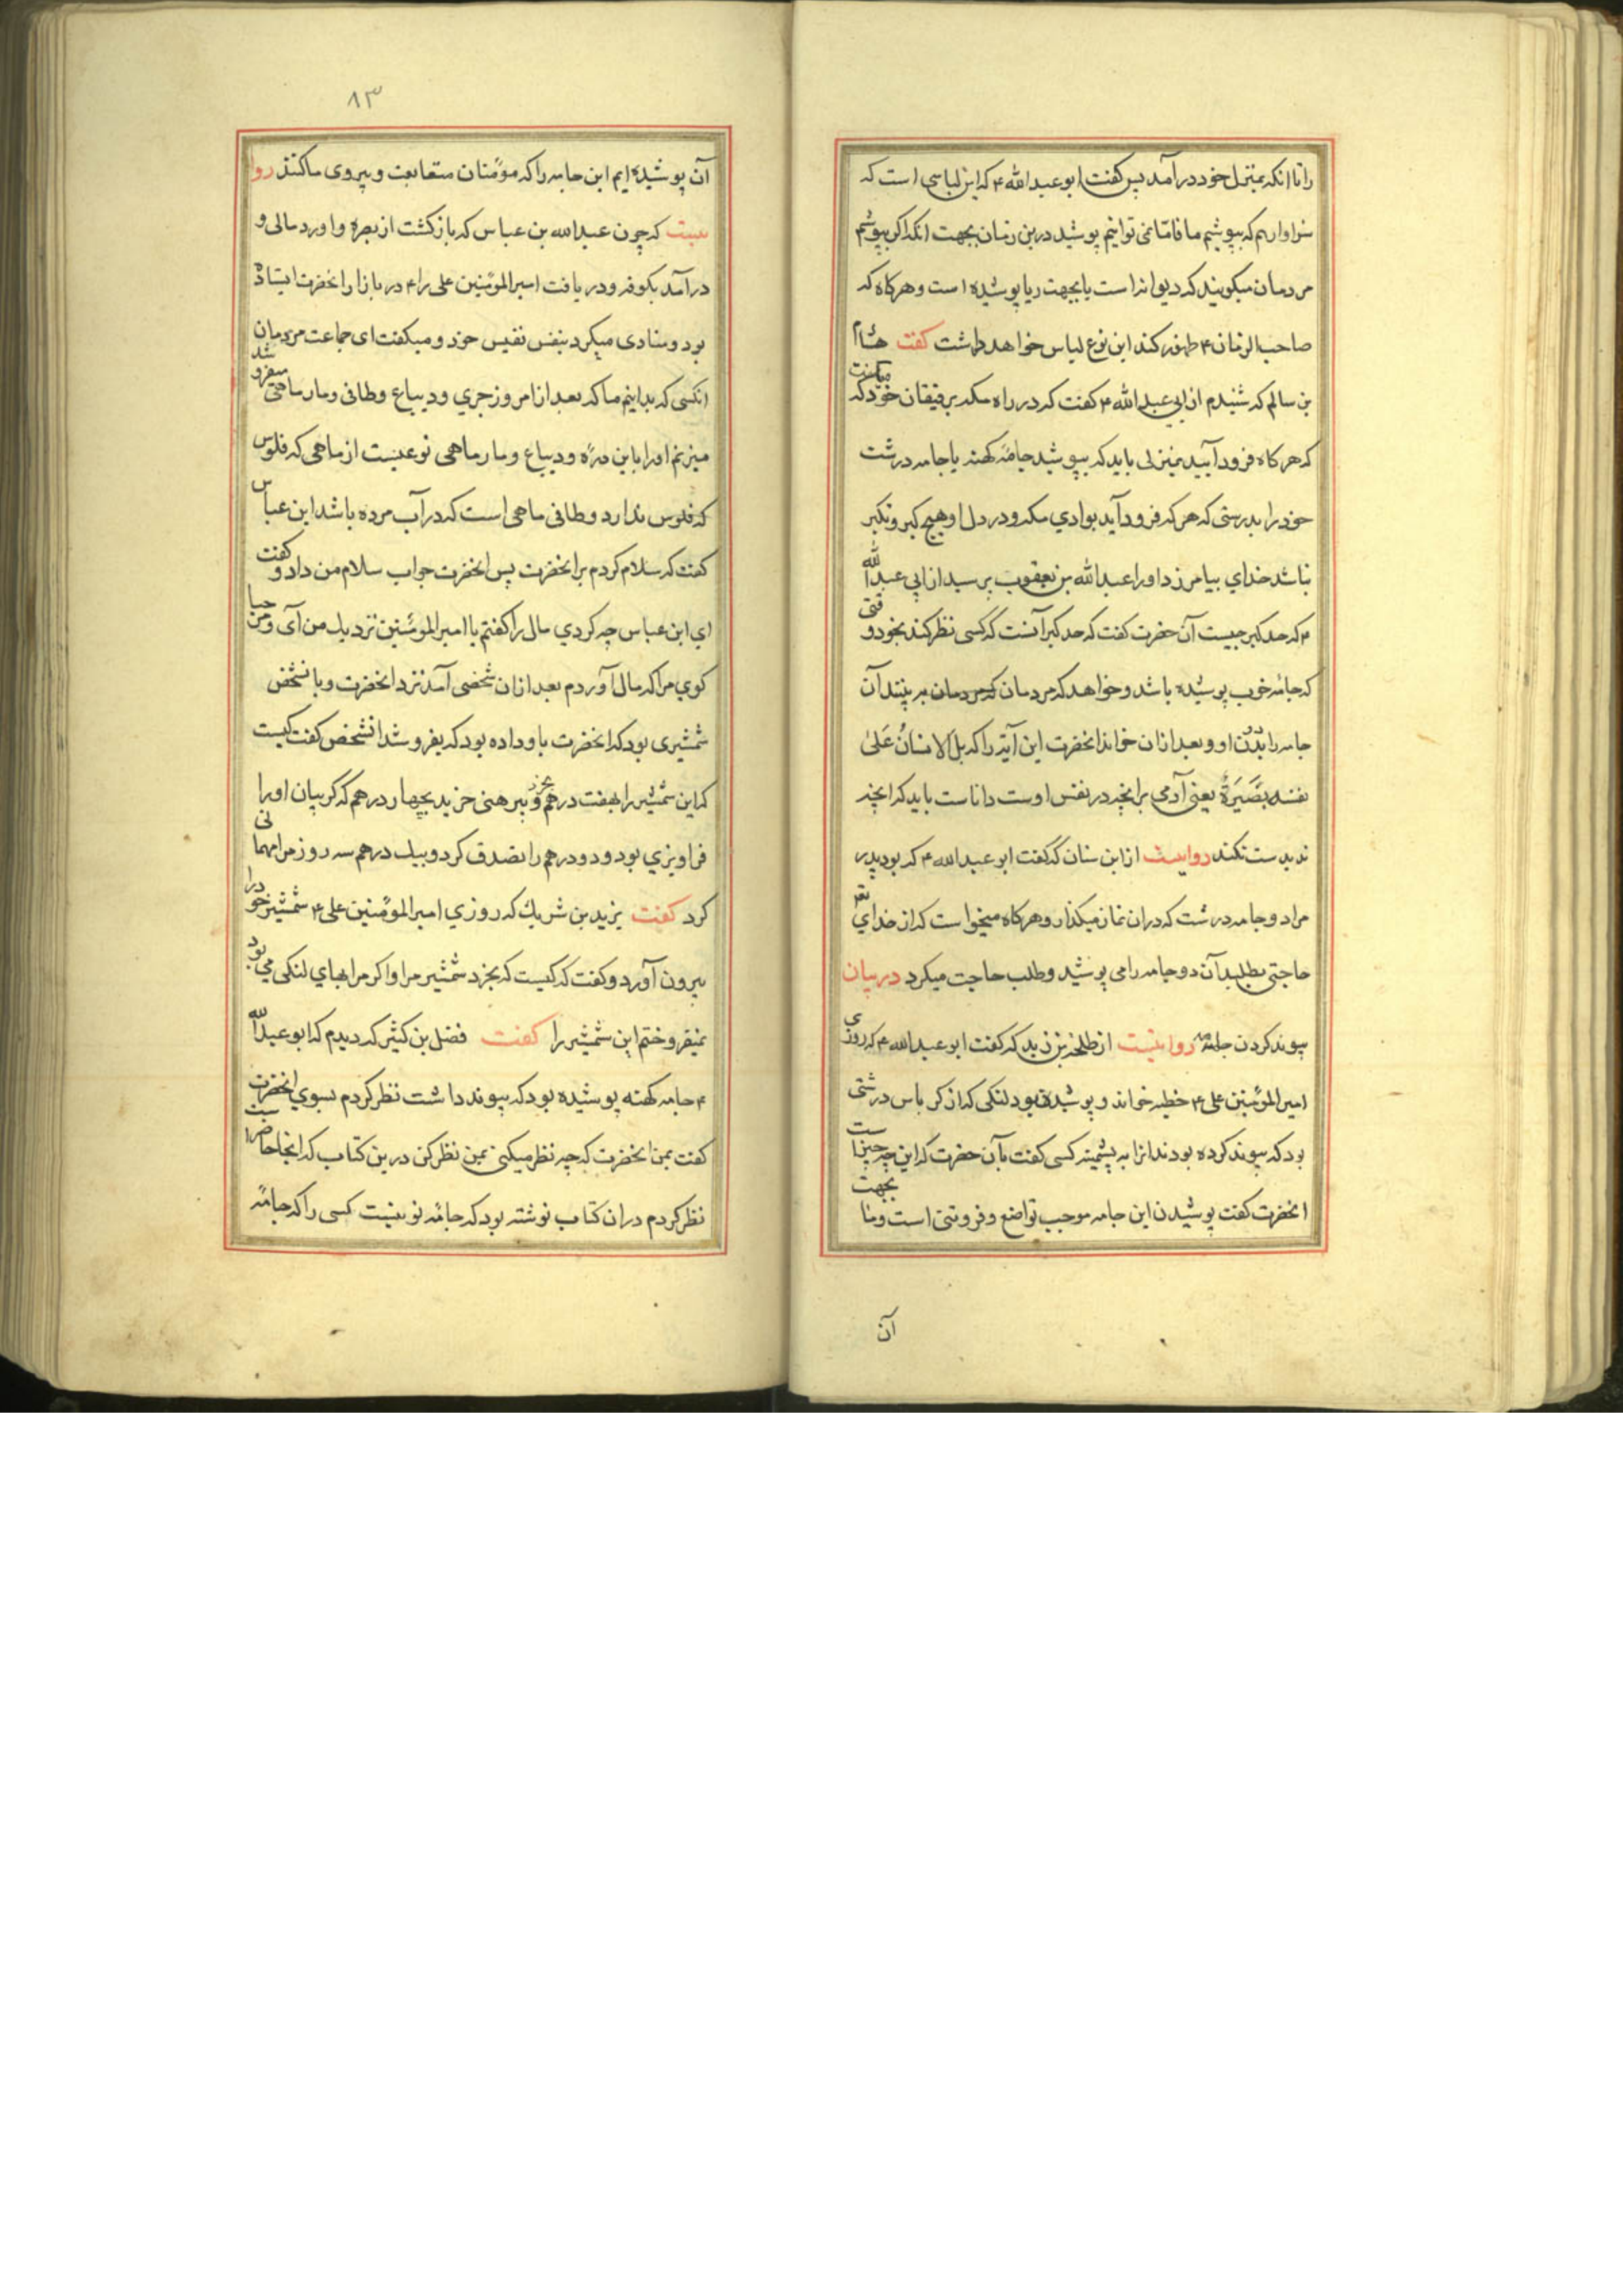 را تا انکه بمنزل خود درآمد پس کفت ابو عبد الله ۴ که این لباسی است که
سزاواریم که بپوشیم ما فامّا نمی توانیم پوشید درین زمان بجهت انکه اکر بپوشیم
مردمان میکویند که دیوانه است یا بجهت ریا پوشیده است و هرکاه که
صاحب الزمان ۴ ظهور کند این نوع لباس خواهد داشت کفت هشام
بن سالم که شنیدم از ابی عبد الله ۴ کفت که در راه مکه برفیقان خود میکفت که
که هرکاه فرود آیید بمنزلی باید که بپوشید جامهٔ کهنه یا جامه درشت
خود را بدرستی که هر که فرود آید بوادی مکه و در دل او هیچ کبر و تکبر
نباشد خدای بیامرزد او را عبد الله بن یعقوب پرسید از ابی عبد الله
۴ که حد کبر چیست آن حضرت کفت که حد کبر آنست که کسی نظر کند بخود وقتی
که جامهٔ خوب پوشیده باشد و خواهد که مردمان که مردمان به بینند آن
جامه را بدن او و بعد ازان خواند انحضرت این آیه را که بَلِ الانسَانُ عَلیٰ
نفسه بصَیرَةٌ یعنی آدمی برانچه در نفس اوست داناست باید که انچه
ند بدست نکند روایست از ابن سنان که کفت ابو عبد الله ۴ که بود پدر
مرا دو جامه درشت که دران نماز میکذارد و هرکاه میخواست که از خدای تعم
حاجتی بطلبد آن دو جامه را می پوشید و طلب حاجت میکرد در بیان
پیوند کردن جامه روایتیست از طلحه بن زید که کفت ابو عبد الله ۴ که روزی
امیر المؤمنین علی ۴ خطبه خواند و پوشیده بود لنکی که از کرباس درشتی
بود که پیوند کرده بودند انرا به پشمینه کسی کفت بآن حضرت که این چه چیزاست
انحضرت کفت پوشیدن این جامه موجب تواضع و فروتنی است و ما بجهت
آن
۸۳
آن پوشیده ایم این جامه را که مؤمنان متعابعت و پیروی ما کنند روا
یتیت که چون عبد الله بن عباس که بازکشت از بصره و اورد مالی و
درآمد بکوفه و دریافت امیر المؤمنین علی را ۴ در بازار انحضرت ایستاده
بود و منادی میکرد بنفس نفیس خود و میکفت ای جماعت مردمان
انکسی که بدانیم ما که بعد از امروز جری و دیباع و طافی و مارماهی میفروشد
میزنم او را باین درّه و دیباع و مارماهی نوعیست از ماهی که فلوس
که فلوس ندارد و طافی ماهی است که در آب مرده باشد ابن عباس
کفت که سلام کردم بر انحضرت پس انحضرت جواب سلام من داد و کفت
ای ابن عباس چه کردی مال را کفتم یا امیر المؤمنین نزدیك من آی و من
کوی مرا که مال آوردم بعد ازان شخصی آمد نزد انحضرت و با نشخص
شمشیری بود که انحضرت باو داده بود که بفروشد انشخص کفت کیست
که این شمشیر را بهفت درهم بخرد و پیرهنی خرید بچهار درهم که کریبان او را
فراویزی بود و دو درهم را تصدق کرد و بیك درهم سه روز مرا مهمانی
کرد کفت یزید بن شریك که روزی امیر المؤمنین علی ۴ شمشیر خود را
بیرون آورد و کفت که کیست که بخرد شمشیر مرا و اکر مرا بهای لنکی می بود
نمیفروختم این شمشیر را کفت فضل بن کثیر که دیدم که ابو عبد الله
۴ جامه کهنه پوشیده بود که پیوند داشت نظر کردم بسوی انحضرت
کفت بمن انحضرت که چه نظر میکنی بمن نظر کن درین کتاب که اینجا حاضراست
نظر کردم دران کتاب نوشته بود که جامهٔ نو نیست کسی را که جامهٔ